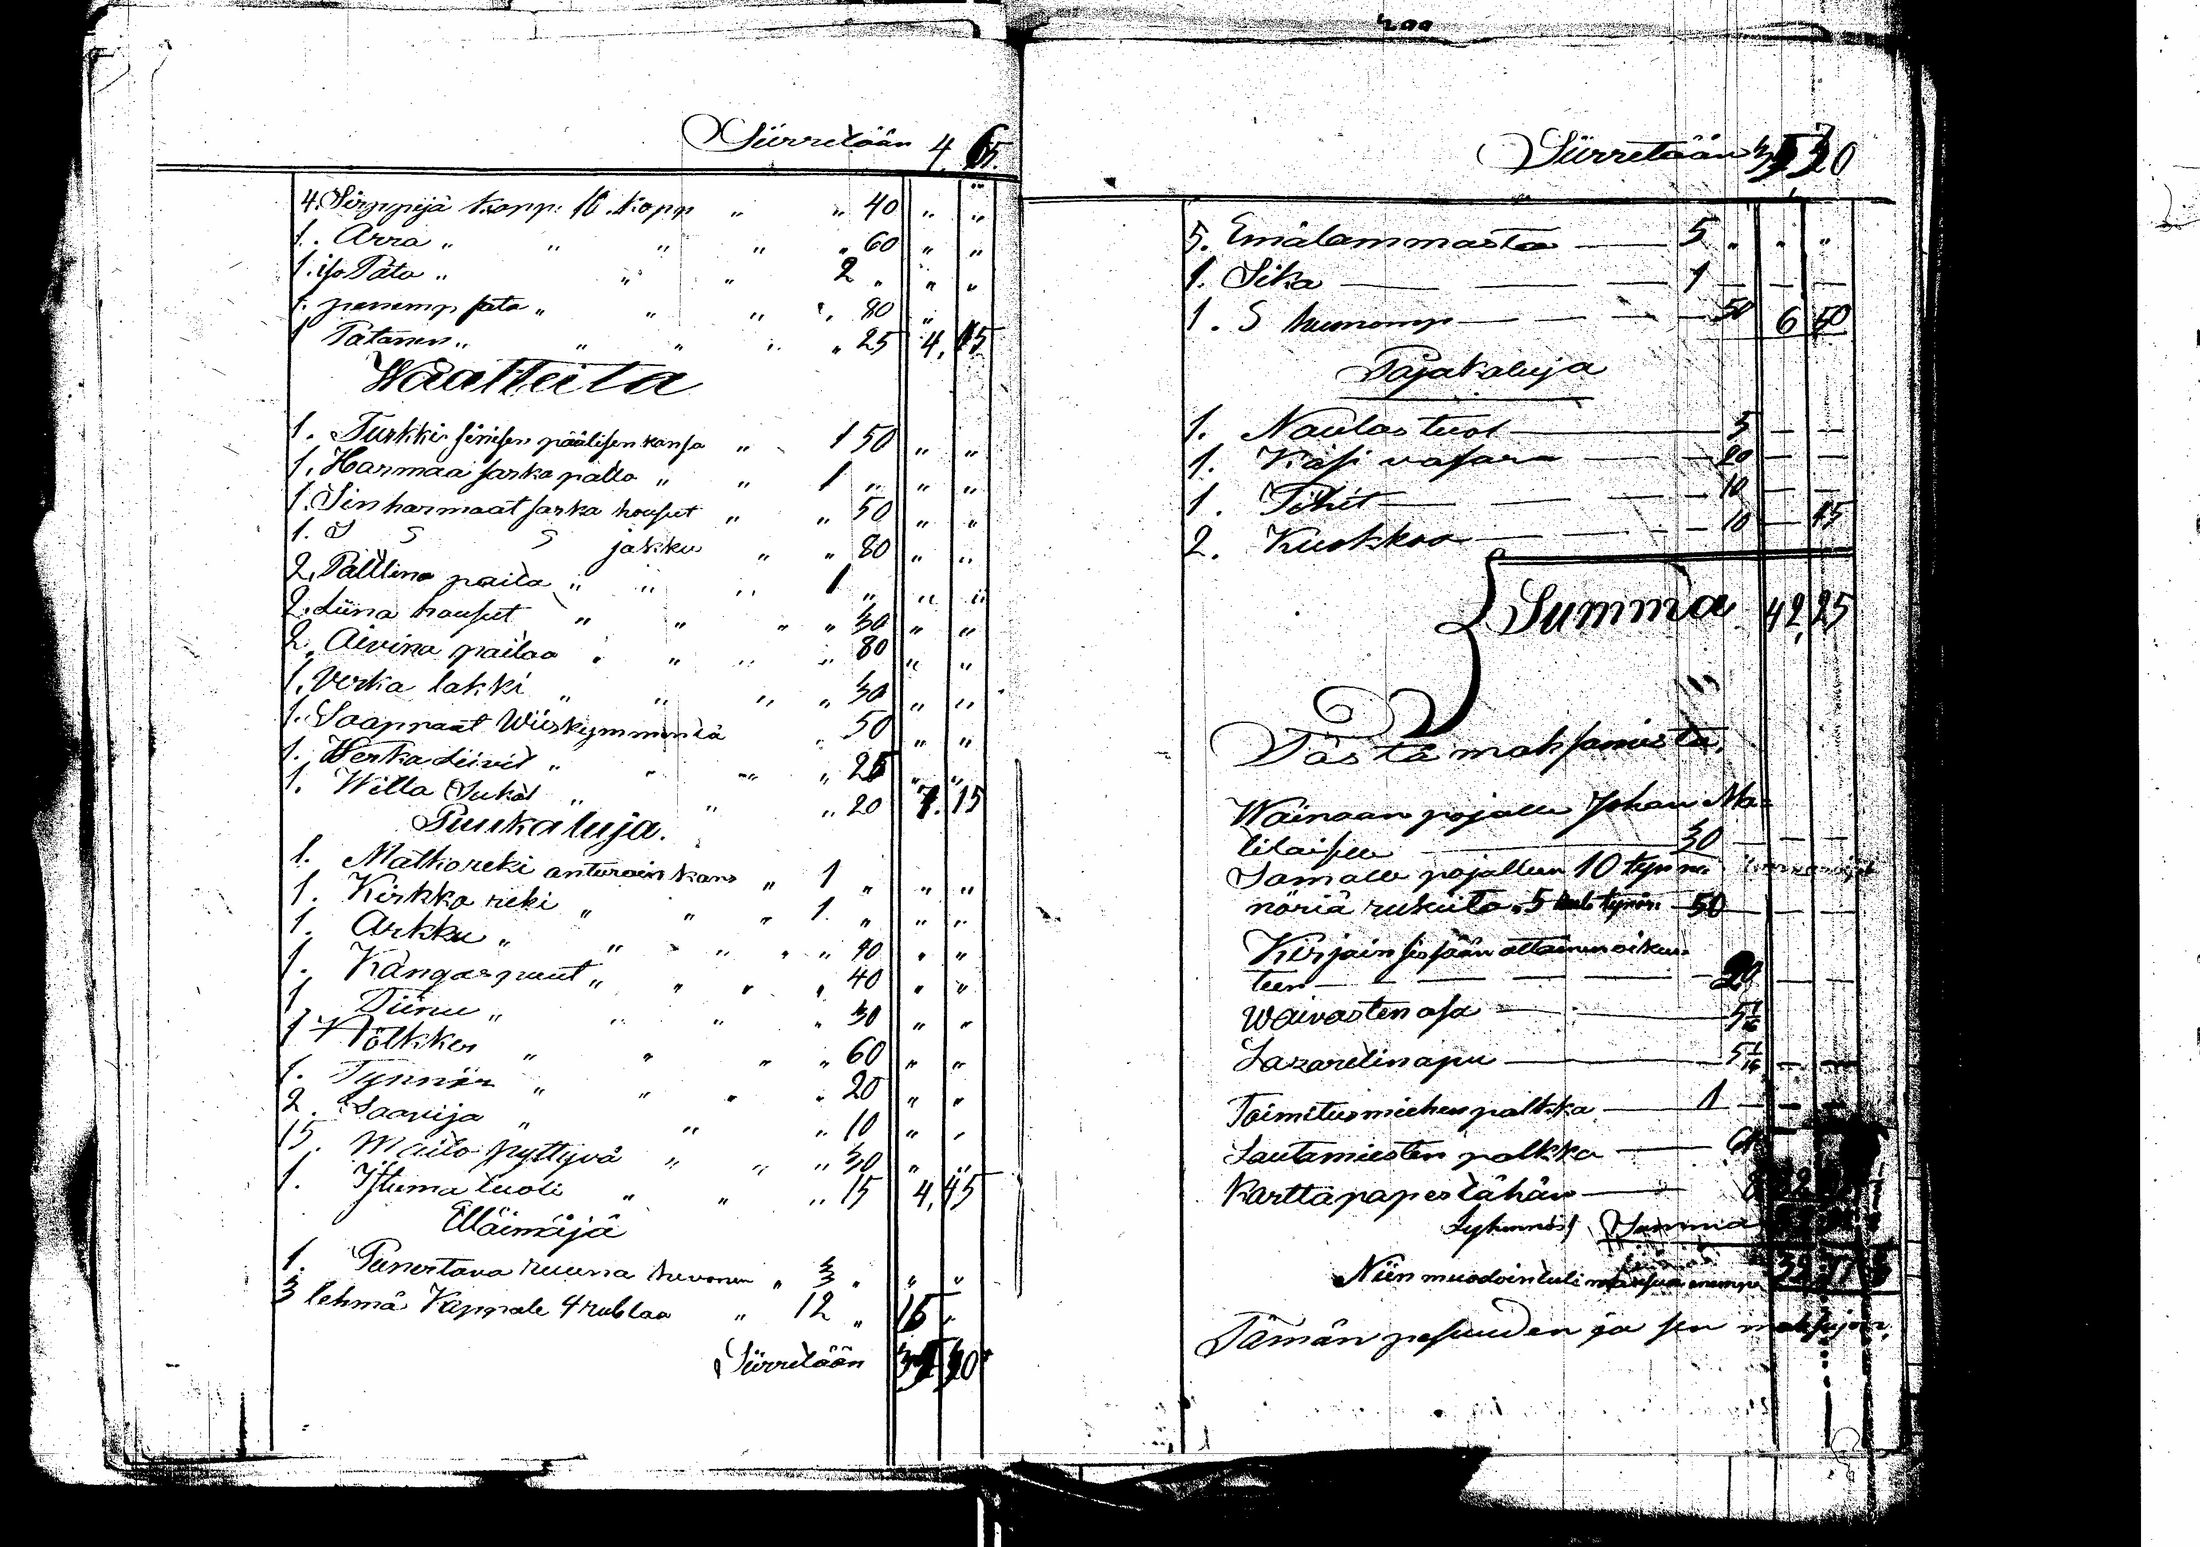 Siirretään 4. 65.
4. Sirppejä kopp: 10. kopp " " 40 " "
1. Arra " " " " " 60 " "
1. iso Pata " " " 2 " " "
1. pienemp pata " " " " 80 "
1 Patanen " " " " " 25 4. 15
Waatteita
1. Turkki sinisen päälisen kansa " 1 50 " "
1. Harmaa sarka paltto " " 1 " " "
1. Sinharmaat sarka housut " " 50 " "
1. S S S jakku " " 80 " "
2. Palttina paita " " " 1 " " "
2. Liina housut " " " " 30 " "
2. Aivina paitaa " " " " 80 " "
1. Verka lakki " " " " 30 " "
1. Saappaat Wiiskymmentä " 50 " "
1. Werka Liivit " " " " 25 " "
1. Willa Sukat " " " 20 7. 15
Puukaluja.
1. Matkareki anturain kans " 1 " " "
1. Kirkko reki " " " 1. " " "
1. Arkku " " " " " 40 " "
1. Kangaspuut " " " " 40 " "
1. Tiinu " " " " 30 " "
1 Nölkker " " " " 60 " "
1. Tynnär " " " " 20 " "
2. Saavija " " " 10 " "
15. Maito pyttyvä " " " 30 " "
1. Istuma tuoli " " " 15 4. 45
Eläimäjä
1. Punertava ruuna huvonen " 3 " " "
3 lehmä Kappale 4 rublaa " 12 " 15 "
Siirretään
200
Siirretään
5. Emälammasta — 5 " " "
1. Sika — 1 — —
1. S — 50 6 50
Pajakaluja
1. Naulastuol — 5 — —
1. Käsi vasara — 20 — —
1. Pihit — 10 — —
2. Kuokkoa — 10 — 45
Summa 42,25
Tästä maksamista,
Wainaan pojalle Johan Ma-
tilaiselle — 30 — —
Samalle pojallen 10 tynn.
näriä rukiita, 5 rub. tynn. — 50 — —
Kirjain sissään ottamen oikeu-
teen — 20
Waivasten osa — 5 1/16
Lazaretin apu — 5 1/16 — —
Toimitusmiehen palkka — 1 — —
Lautamiesten palkka —
Karttapaperi tähän —
Summa
Niin muodoin tuli
Tämän pesuuden ja sen maksujen,